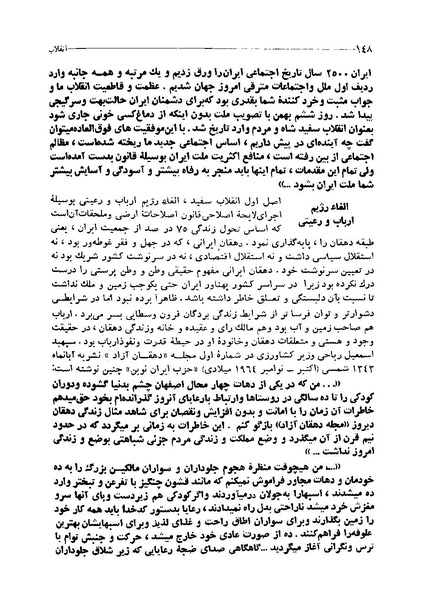 ۱۴۸ انقلاب
ایران ۲۵۰۰ سال تاریخ اجتماعی ایران را ورق زدیم و یك مرتبه و همه جانبه وارد
ردیف اول ملل واجتماعات مترقی امروز جهان شدیم . عظمت و قاطعیت انقلاب ما و
جواب مثبت وخرد کنندهٔ شما بقدری بود که برای دشمنان ایران حالت بهت وسرگیجی
پیدا شد . روز ششم بهمن با تصویب ملت بدون اینکه از دماغ کسی خونی جاری شود
بعنوان انقلاب سفید شاه و مردم وارد تاریخ شد . با این موفقیت های فوق العاده میتوان
گفت چه آینده‌ای در پیش داریم ، اساس اجتماعی جدید ما ریخته شده است ، مظالم
اجتماعی از بین رفته است ، منافع اکثریت ملت ایران بوسیلهٔ قانون بدست آمده است
ولی تمام این مقدمات ، تمام اینها باید منجر به رفاه بیشتر و آسودگی و آسایش بیشتر
شما ملت ایران بشود ...»
الغاء رژیم
ارباب و رعیتی
اصل اول انقلاب سفید ، الغاء رژیم ارباب و رعیتی بوسیلهٔ
اجرای لایحهٔ اصلاحی قانون اصلاحات ارضی وملحقات آن است
که اساس تحول زندگی ۷۵ در صد از جمعیت ایران ، یعنی
طبقه دهقان را ، پایه‌گذاری نمود . دهقان ایرانی ، که در جهل و فقر غوطه‌ور بود ، نه
استقلال سیاسی داشت و نه استقلال اقتصادی ، نه در سرنوشت کشور شریك بود نه
در تعیین سرنوشت خود . دهقان ایرانی مفهوم حقیقی وطن و وطن پرستی را درست
درك نکرده بود زیرا در سراسر کشور پهناور ایران حتی یکوجب زمین و ملك نداشت
تا نسبت بآن دلبستگی و تعلق خاطر داشته باشد . ظاهراً برده نبود اما در شرایطی
دشوارتر و توان فرسا تر از شرایط زندگی بردگان قرون وسطایی بسر می‌برد . ارباب
هم صاحب زمین و آب بود وهم مالك رای و عقیده و خانه وزندگی دهقان ، در حقیقت
وجود و هستی و متعلقات دهقان وخانوادهٔ او در حیطهٔ قدرت ونفوذ ارباب بود . سپهبد
اسمعیل ریاحی وزیر کشاورزی در شمارهٔ اول مجله «دهقان آزاد » نشریه آبانماه
۱۳۴۳ شمسی (اکتبر ــ نوامبر ۱۹۶۴ میلادی) «حزب ایران نوین» چنین نوشته است :
«... من که در یکی از دهات چهار محال اصفهان چشم بدنیا گشوده ودوران
کودکی را تا ده سالگی در روستاها وارتباط بارعایای آنروز گذرانده‌ام بخود حق میدهم
خاطرات آن زمان را با امانت و بدون افزایش ونقصان برای شاهد مثال زندگی دهقان
دیروز «مجله دهقان آزاد» بازگو کنم . این خاطرات به زمانی بر میگردد که در حدود
نیم قرن از آن میگذرد و وضع مملکت و زندگی مردم جزئی شباهتی بوضع و زندگی
امروز نداشت ...»
«... من هیچوقت منظرهٔ هجوم جلوداران و سواران مالکین بزرگ را به ده
خودمان و دهات مجاور فراموش نمیکنم که مانند قشون چنگیز با تفرعن و تبختر وارد
ده میشدند ، اسبها را به جولان درمیآوردند واگر کودکی هم زیردست وپای آنها سرو
مغزش خرد میشد ناراحتی بدل راه نمیدادند ، رعایا بدستور کدخدا باید همه کار خود
را زمین بگذارند وبرای سواران اطاق راحت و غذای لذیذ وبرای اسبهایشان بهترین
علوفه را فراهم کنند . ده از صورت عادی خود خارج میشد ، حرکت و جنبش توام با
ترس ونگرانی آغاز میگردید ... گاهگاهی صدای ضجهٔ رعایایی که زیر شلاق جلوداران